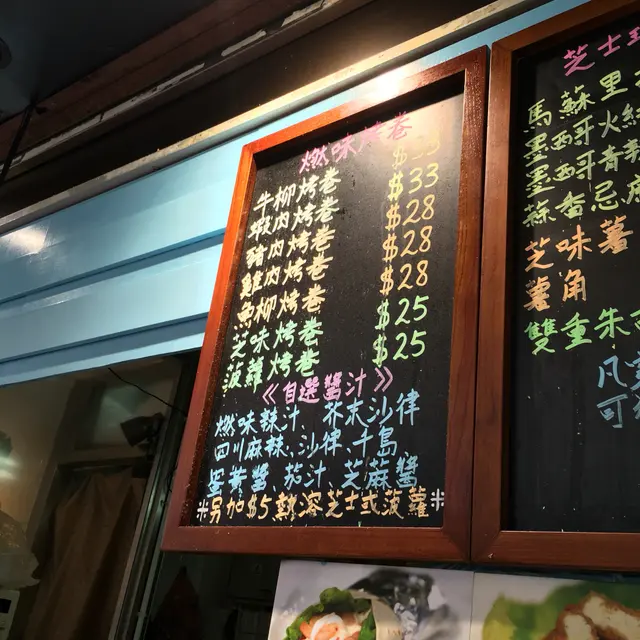 燃味烤卷
牛柳烤卷 $33
蝦肉烤卷 $33
豬肉烤卷 $28
雞肉烤卷 $28
魚柳烤卷 $28
芝味烤卷 $25
菠蘿烤卷 $25
《自選醬汁》
燃味辣汁、芥末沙律
四川麻辣、沙律、千島
蛋黃醬、茄汁、芝蔴醬
*另加$5熱溶芝士或菠蘿*
芝士
馬蘇里
墨西哥火
墨西哥青
蒜香忌
芝味薯
薯角
雙重朱
凡
可